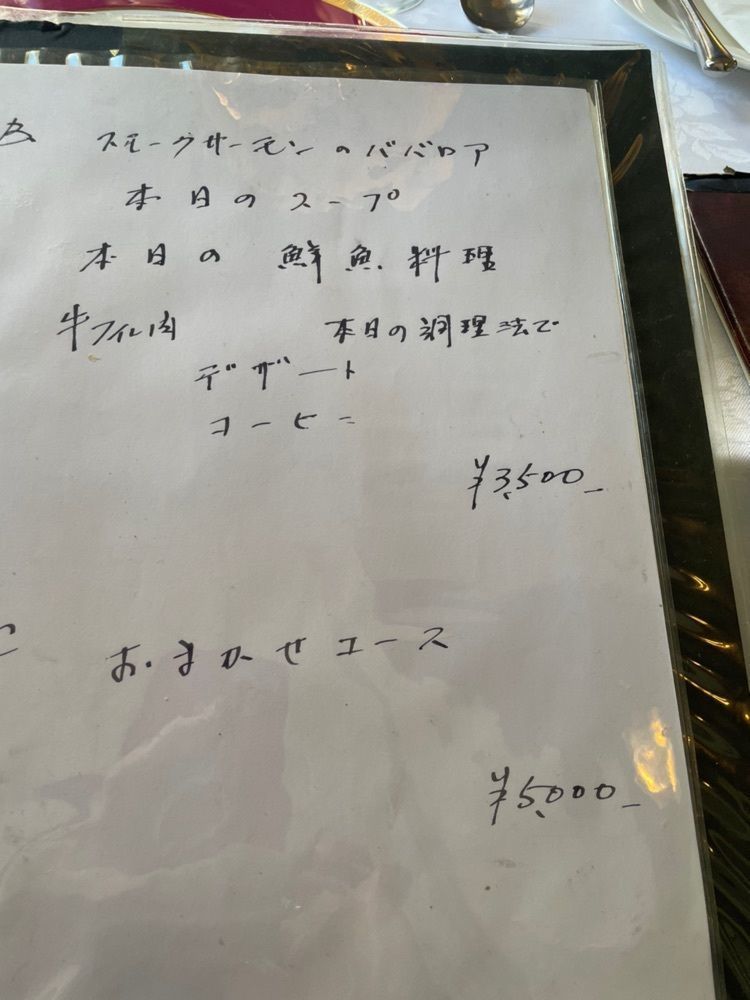 スモークサーモンのババロア
本日のスープ
本日の 鮮魚料理
牛フィレ肉 本日の調理法で
デザート
コーヒー
¥3,500_
おまかせコース
¥5,000_